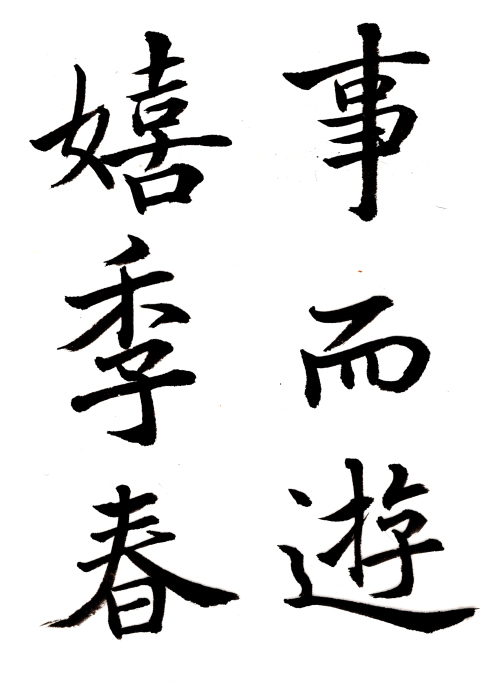 事而遊
嬉季春